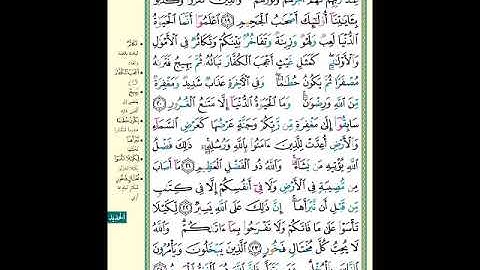 عِندَ رَبِّهِمْ لَهُمْ أَجْرُهُمْ وَنُورُهُمْ وَالَّذِينَ كَفَرُوا وَكَذَّبُوا
بِـَٔايَـٰتِنَآ أُو۟لَـٰٓئِكَ أَصْحَـٰبُ ٱلْجَحِيمِ ١٩ ٱعْلَمُوٓا۟ أَنَّمَا ٱلْحَيَوٰةُ
ٱلدُّنْيَا لَعِبٌ وَلَهْوٌ وَزِينَةٌ وَتَفَاخُرٌۢ بَيْنَكُمْ وَتَكَاثُرٌ فِى ٱلْأَمْوَٰلِ
وَٱلْأَوْلَـٰدِ كَمَثَلِ غَيْثٍ أَعْجَبَ ٱلْكُفَّارَ نَبَاتُهُۥ ثُمَّ يَهِيجُ فَتَرَىٰهُ
مُصْفَرًّا ثُمَّ يَكُونُ حُطَـٰمًا وَفِى ٱلْـَٔاخِرَةِ عَذَابٌ شَدِيدٌ وَمَغْفِرَةٌ
مِّنَ ٱللَّهِ وَرِضْوَٰنٌ وَمَا ٱلْحَيَوٰةُ ٱلدُّنْيَآ إِلَّا مَتَـٰعُ ٱلْغُرُورِ ٢٠
سَابِقُوٓا۟ إِلَىٰ مَغْفِرَةٍ مِّن رَّبِّكُمْ وَجَنَّةٍ عَرْضُهَا كَعَرْضِ ٱلسَّمَآءِ
وَٱلْأَرْضِ أُعِدَّتْ لِلَّذِينَ ءَامَنُوا۟ بِٱللَّهِ وَرُسُلِهِۦ ذَٰلِكَ فَضْلُ
ٱللَّهِ يُؤْتِيهِ مَن يَشَآءُ وَٱللَّهُ ذُو ٱلْفَضْلِ ٱلْعَظِيمِ ٢١ مَآ أَصَابَ
مِن مُّصِيبَةٍ فِى ٱلْأَرْضِ وَلَا فِىٓ أَنفُسِكُمْ إِلَّا فِى كِتَـٰبٍ
مِّن قَبْلِ أَن نَّبْرَأَهَآ إِنَّ ذَٰلِكَ عَلَى ٱللَّهِ يَسِيرٌ ٢٢ لِّكَيْلَا
تَأْسَوْا۟ عَلَىٰ مَا فَاتَكُمْ وَلَا تَفْرَحُوا۟ بِمَآ ءَاتَىٰكُمْ وَٱللَّهُ
لَا يُحِبُّ كُلَّ مُخْتَالٍ فَخُورٍ ٢٣ ٱلَّذِينَ يَبْخَلُونَ وَيَأْمُرُونَ
الحديد